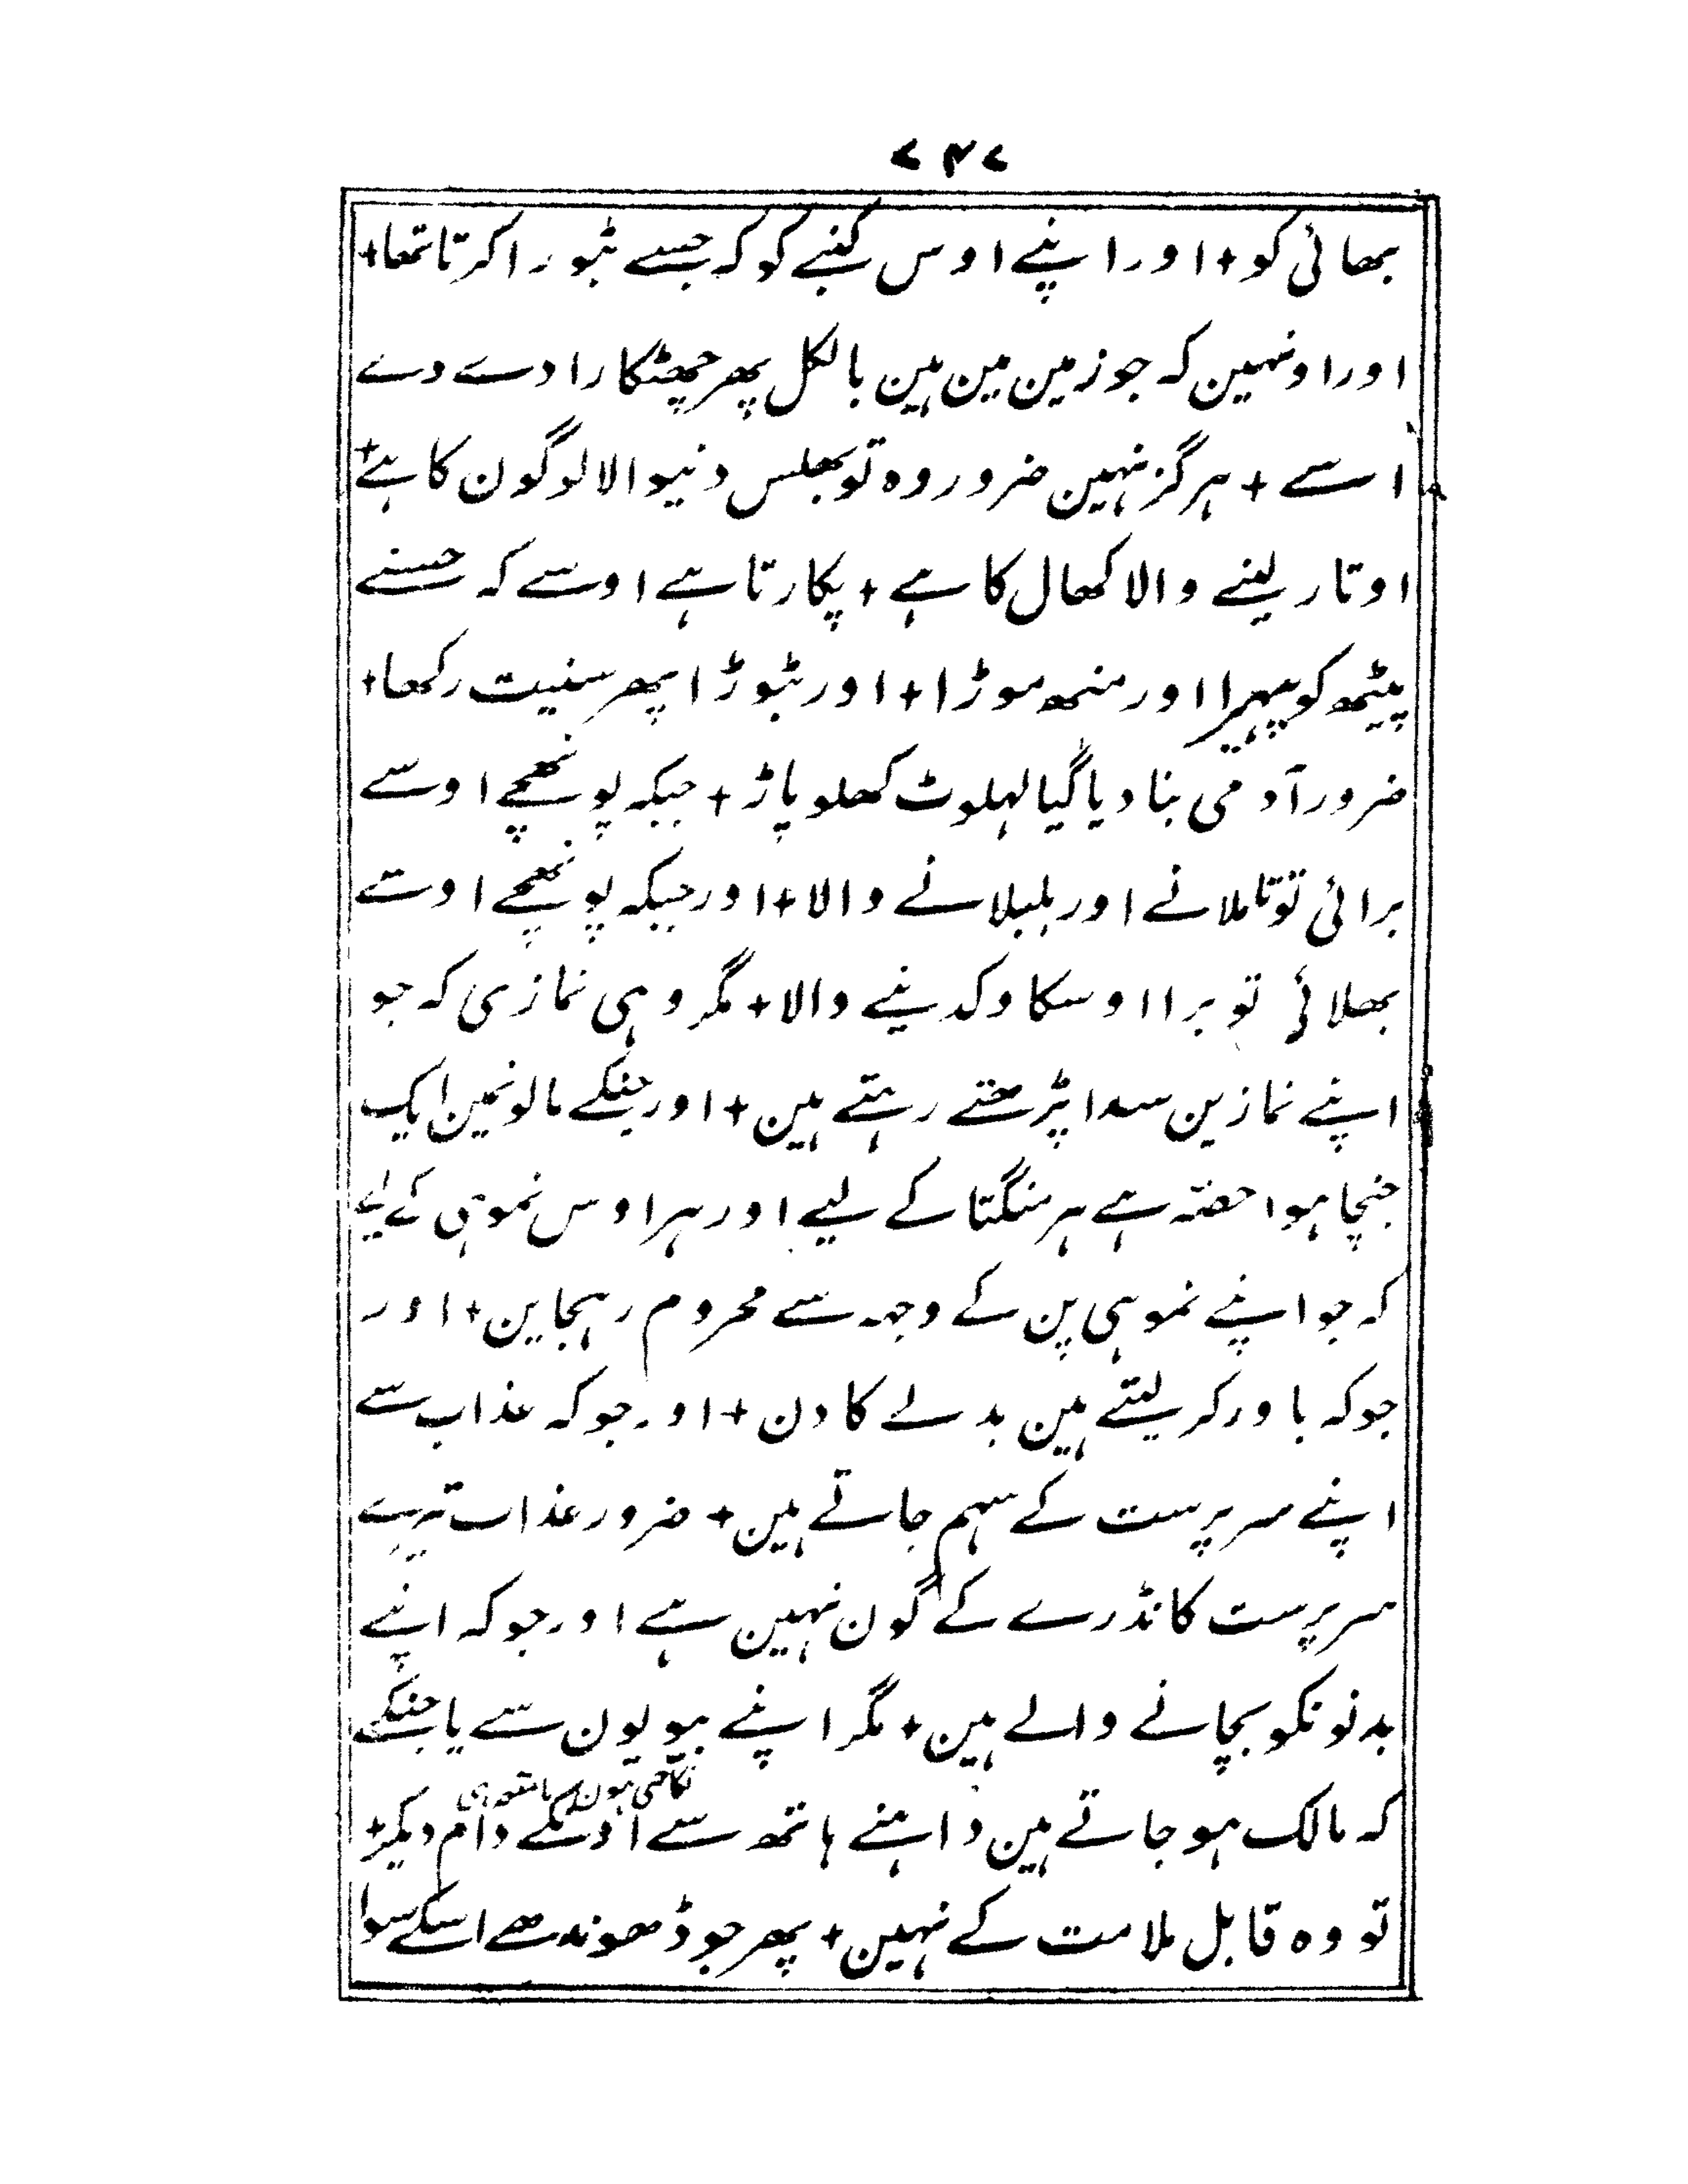 ۷۴۷
بھائی کو + اور اپنے اوس کنبے کو کہ جسے بٹورا کرتا تھا +
اور اونہین کہ جو زمین مین ہین بالکل پھر چھٹکارا دے دے
اسے + ہرگز نہین ضرور وہ تو بھلس دنیوالا لوگون کا ہے +
اوتار لینے والا کھال کا ہے + پکارتا ہے اوسے کہ جسنے
پیٹھ کو پھیرا اور منھ موڑا + اور بٹوڑا پھر سنیت رکھا +
ضرور آدمی بنا دیا گیا لہلوٹ کھلو پاڑ + جبکہ پونھچے اوسے
برائی تو تلملانے اور بلبلانے والا + اور جبکہ پونھچے اوسے
بھلائی تو برا اوسکا وکدینے والا + مگر وہی نمازی کہ جو
اپنے نمازین سدا پڑھتے رہتے ہین + اور جنکے مالونمین ایک
جنچا ہوا حصّہ ہے ہر منگتا کے لیے اور ہر اوس نموہی کے لیے
کہ جو اپنے نموہی پن کے وجہہ سے محروم رہجاین + اور
جو کہ باور کر لیتے ہین بدلے کا دن + اور جو کہ عذاب سے
اپنے سرپرست کے سہم جاتے ہین + ضرور عذاب تیرے
سرپرست کا نڈرے کے گون نہین ہے اور جو کہ اپنے
بدنونکو بچانے والے ہین + مگر اپنے بیویون سے یا جنکے
کہ مالک ہو جاتے ہین داہنے ہاتھ سے اونکے دام دیکر +
تو وہ قابل ملامت کے نہین + پھر جو ڈھونڈھے اسکے سوا